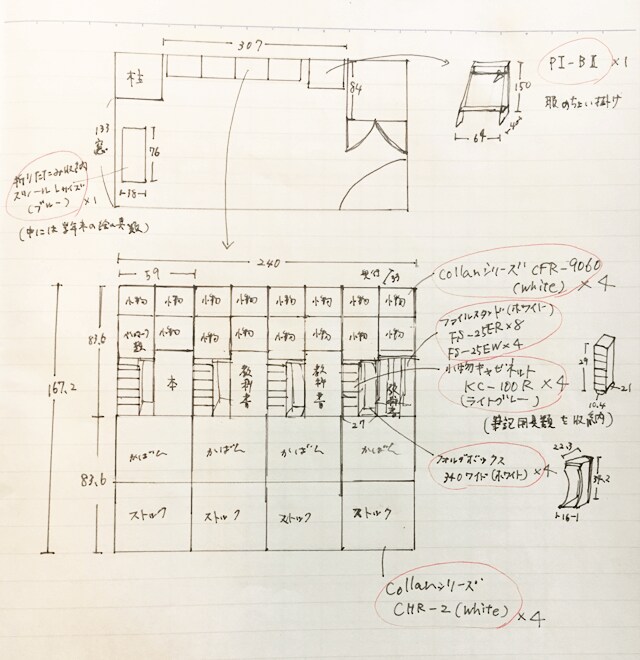 307
PI-BⅡ ×1
柱
84
150
服のちょい掛け
64
133
窓
76
折りたたみ収納
スツール Lサイズ
(ブルー) ×1
38
240
59
奥行
Collanシリーズ CFR-9060
(White) ×4
小物 小物 小物 小物 小物 小物 小物 小物
小物 小物 小物 小物 小物 小物 小物
類
83.6
ファイルスタンド(ホワイト)
FS-25ER×8
FS-25EW×4
小物キャビネット
KC-100R ×4
(ライトグレー)
29
10.4
21
(筆記用具類を収納)
本
教科書
教科書
教科書
27
167.2
かばん かばん かばん かばん
フォルダボックス
340ワイド(ホワイト) ×4
22.3
34.2
16
83.6
ストック ストック ストック ストック
Collanシリーズ
CHR-2 (White) ×4